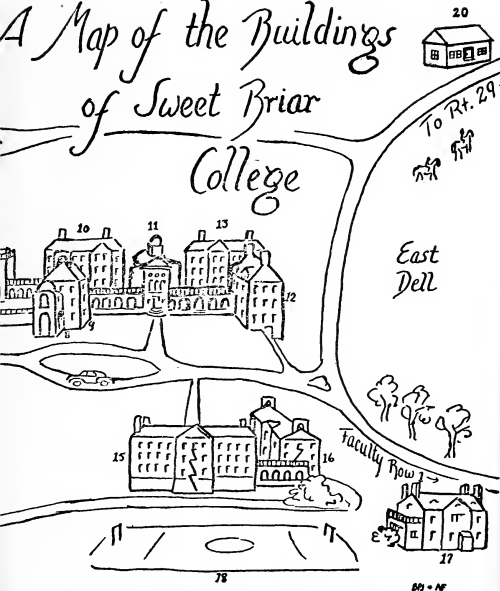 A Map of the Buildings
of Sweet Briar
College
20
To Rt. 29
East
Dell
10
11
13
12
8
9
15
16
Faculty Row →
17
18
BPS + NF